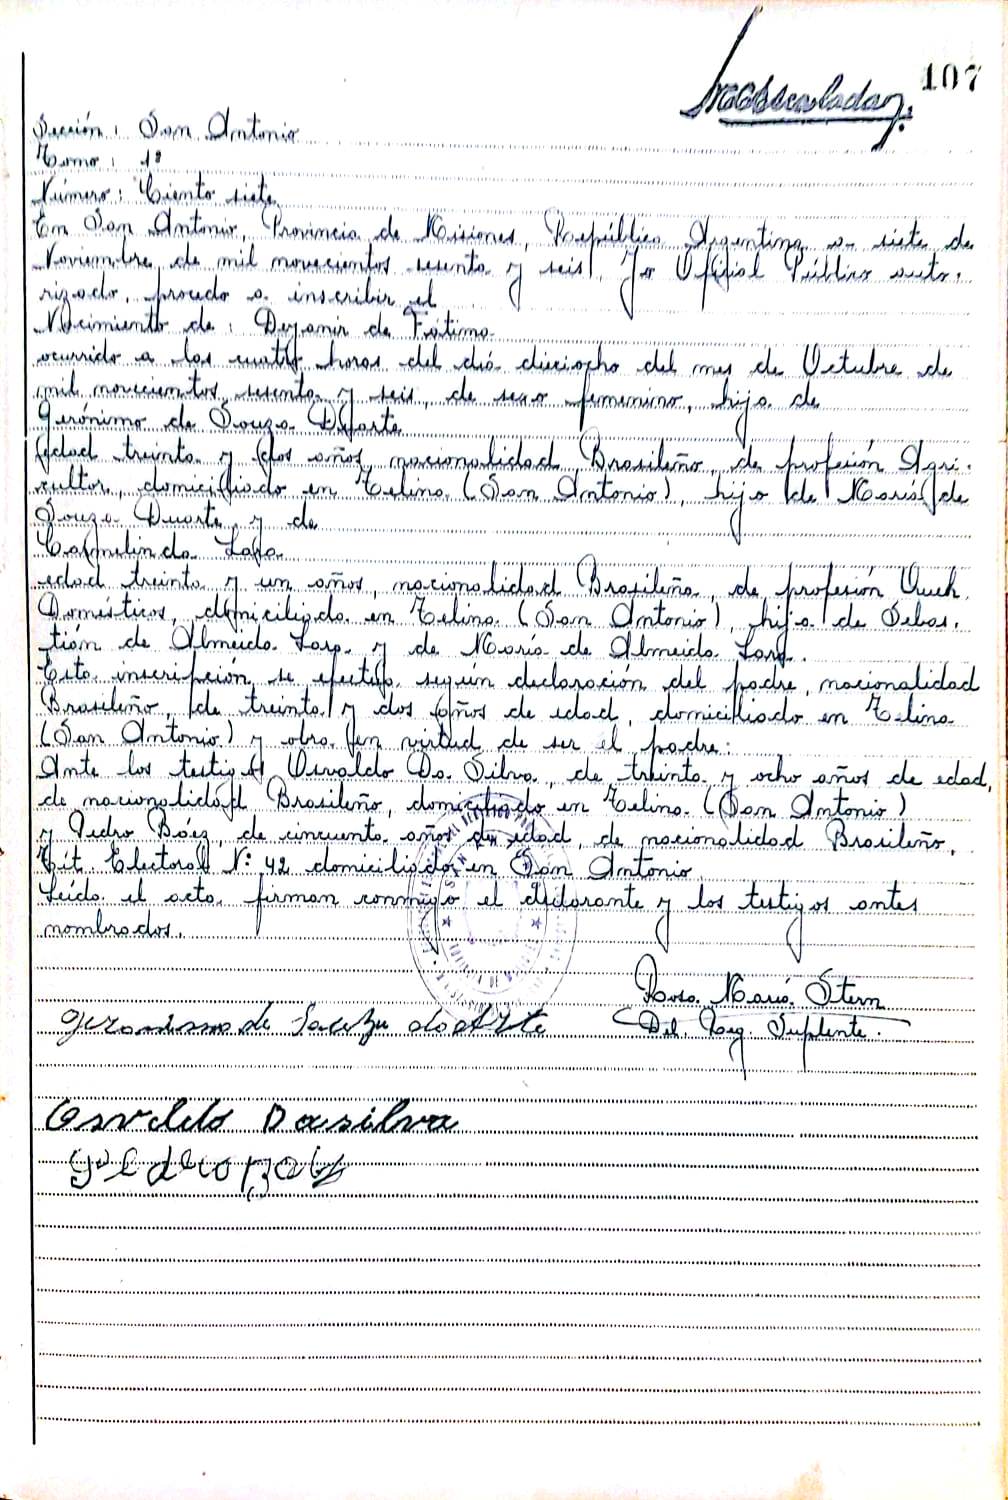 107
Sección: San Antonio
Tomo: 1º
Número: Ciento siete
En San Antonio, Provincia de Misiones, República Argentina a siete de
Noviembre de mil novecientos sesenta y seis, Yo Oficial Público auto-
rizado, procedo a inscribir el
Nacimiento de: Dejanir de Fátima
ocurrido a las cuatro horas del día dieciocho del mes de Octubre de
mil novecientos sesenta y seis, de sexo femenino, hija de
Gerónimo de Souza Duarte
edad treinta y dos años, nacionalidad Brasileño, de profesión Agri-
cultor, domiciliado en Celina (San Antonio), hijo de María de
Souza Duarte y de
Carmelinda Lara
edad treinta y un años, nacionalidad Brasileña, de profesión Queh.
Domésticos, domiciliada en Celina (San Antonio), hija de Sebas-
tión de Almeida Lara y de María de Almeida Lara.
Esta inscripción se efectúa según declaración del padre, nacionalidad
Brasileño, de treinta y dos años de edad, domiciliado en Celina
(San Antonio) y obra en virtud de ser el padre:
Ante los testigos Osvaldo Da Silva, de treinta y ocho años de edad,
de nacionalidad Brasileño, domiciliado en Celina (San Antonio)
y Pedro Báez, de cincuenta años de edad, de nacionalidad Brasileño,
Cit. Electoral Nº: 42 domiciliado en San Antonio
Leída el acta, firman conmigo el declarante y los testigos antes
nombrados.
Rosa María Stern
Geronismo de Souza doarte
Del. Reg. Suplente.
Osvaldo Dasilva